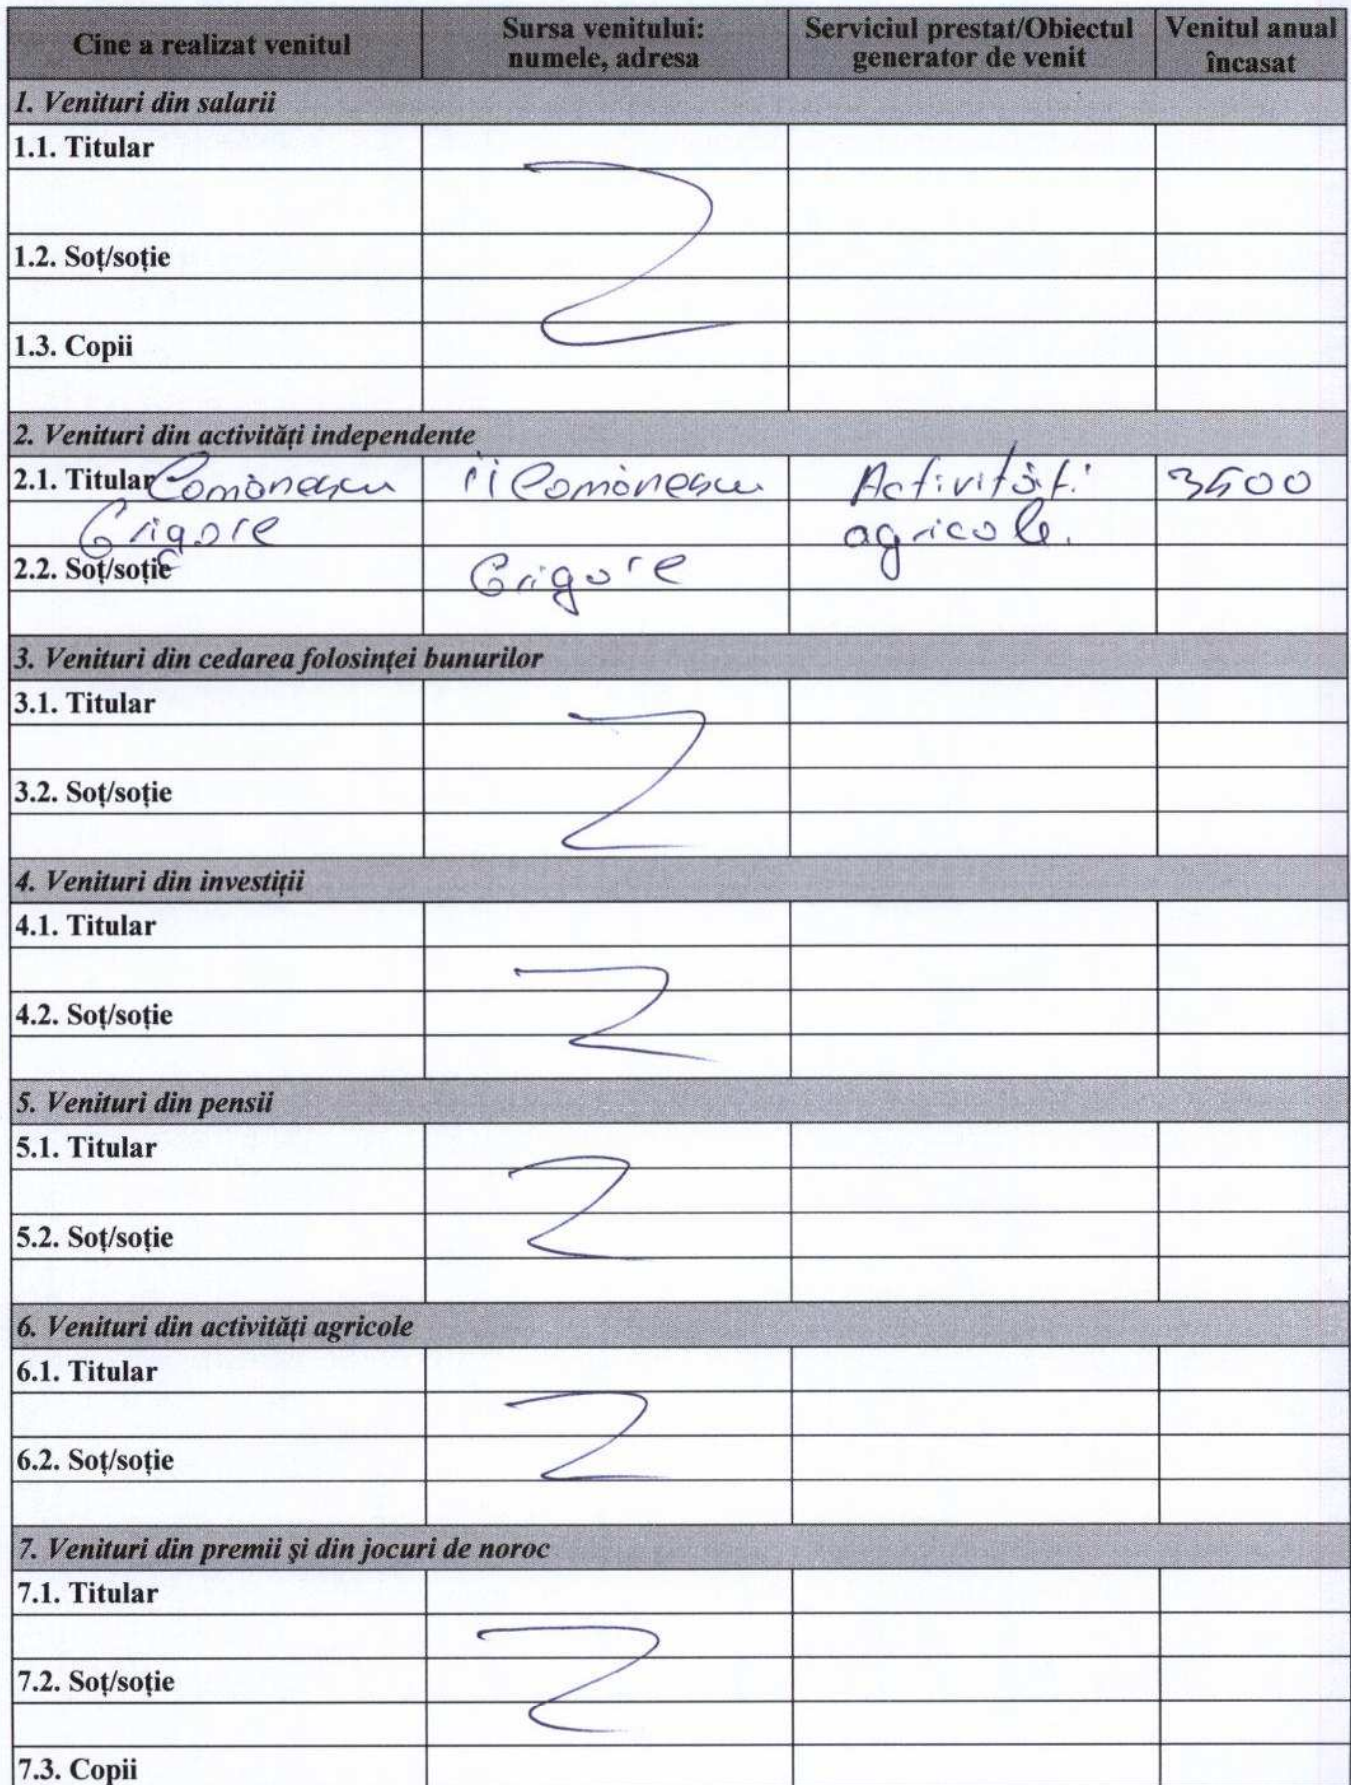 Cine a realizat venitul
Sursa venitului:
numele, adresa
Serviciul prestat/Obiectul
generator de venit
Venitul anual
încasat
1. Venituri din salarii
1.1. Titular
1.2. Soţ/soţie
1.3. Copii
2. Venituri din activităţi independente
2.1. Titular Comănescu îi Comănescu Activităţi 3500
Grigore agricole.
2.2. Soţ/soţie Grigore
3. Venituri din cedarea folosinţei bunurilor
3.1. Titular
3.2. Soţ/soţie
4. Venituri din investiţii
4.1. Titular
4.2. Soţ/soţie
5. Venituri din pensii
5.1. Titular
5.2. Soţ/soţie
6. Venituri din activităţi agricole
6.1. Titular
6.2. Soţ/soţie
7. Venituri din premii şi din jocuri de noroc
7.1. Titular
7.2. Soţ/soţie
7.3. Copii